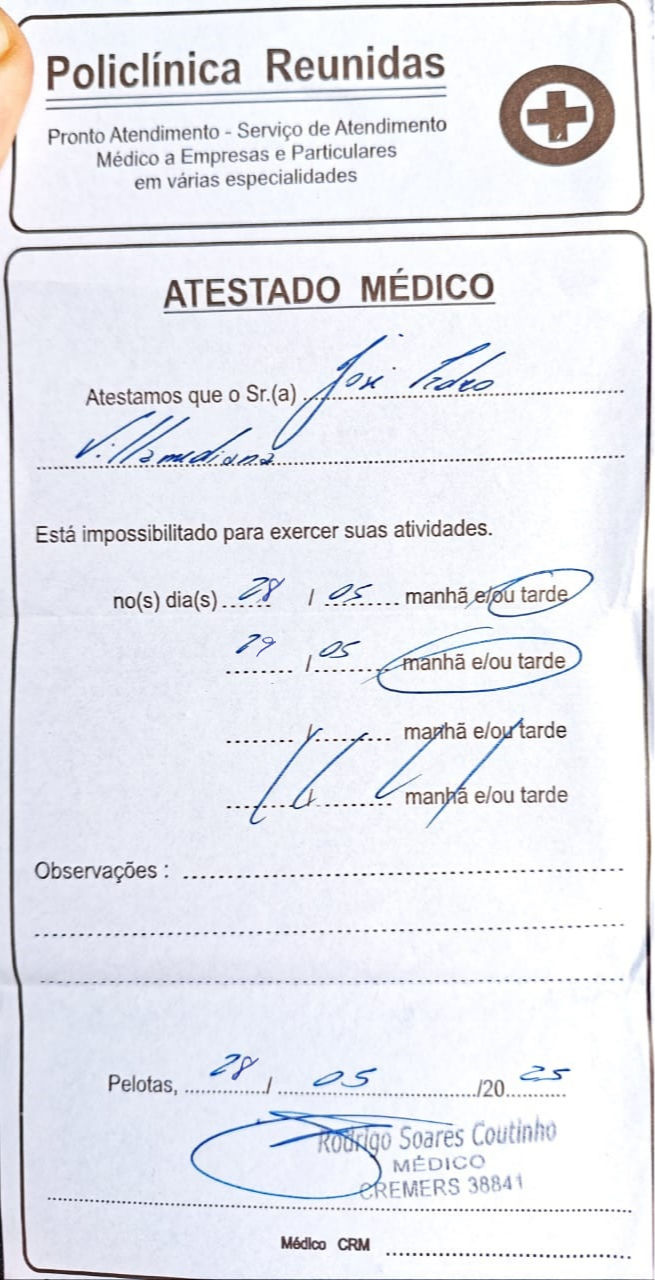 Policlínica Reunidas
Pronto Atendimento - Serviço de Atendimento
Médico a Empresas e Particulares
em várias especialidades
ATESTADO MÉDICO
Atestamos que o Sr.(a) José Pedro
Villamediana
Está impossibilitado para exercer suas atividades.
no(s) dia(s) 28 / 05 manhã e/ou tarde
29 / 05 manhã e/ou tarde
/ manhã e/ou tarde
/ manhã e/ou tarde
Observações :
Pelotas, 28 / 05 /20 25
Rodrigo Soares Coutinho
MÉDICO
CREMERS 38841
Médico CRM